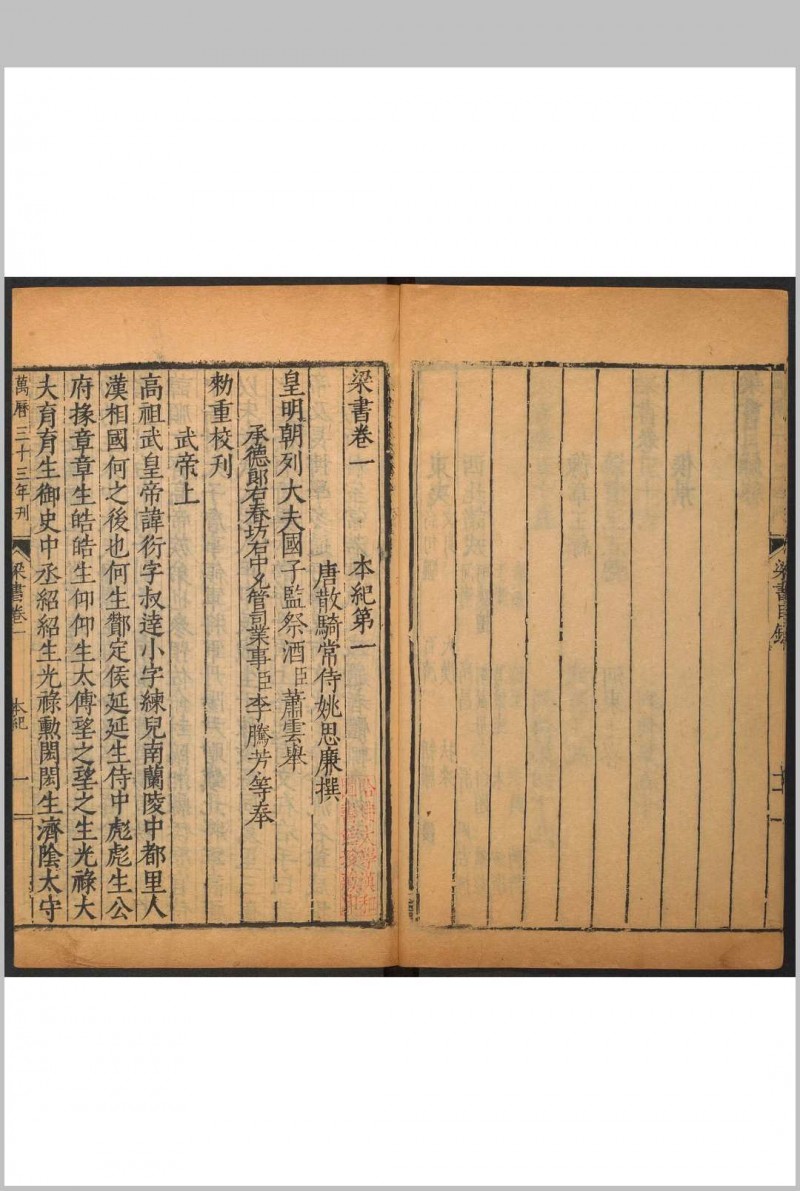 梁書目錄
十一
梁書卷一
本紀第一
唐散騎常侍姚思廉撰
皇明朝列大夫國子監祭酒臣蕭雲舉
承德郎右春坊右中允管司業事臣李騰芳等奉
勑重校刊
武帝上
高祖武皇帝諱衍字叔達小字練兒南蘭陵中都里人
漢相國何之後也何生酇定侯延延生侍中彪彪生公
府掾章章生皓皓生仰仰生太傅望之望之生光祿大
夫育育生御史中丞紹紹生光祿勳閎閎生濟陰太守
萬曆三十三年刊
梁書卷一
本紀
一